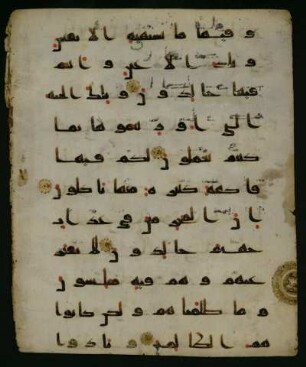 و فيها ما تشتهيه الانفس
و تلذ الاعين و انتم
فيها خلدون و تلك الجنة
التي اورثتموها بما
كنتم تعملون لكم فيها
فكهة كثيرة منها تاكلون
ان المجرمين في عذاب
جهنم خلدون لا يفتر
عنهم و هم فيه مبلسون
و ما ظلمنهم و لكن كانوا
هم الظلمين و نادوا